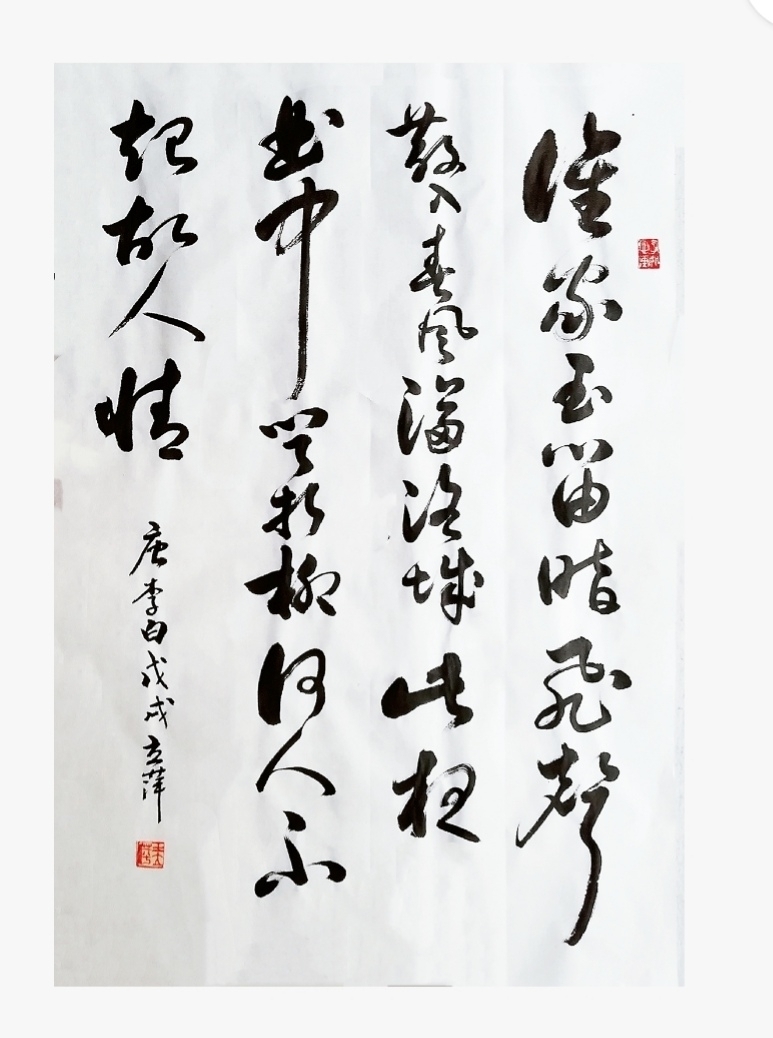 誰家玉笛暗飛聲
散入春風滿洛城此夜
曲中聞折柳何人不
起故人情
唐李白戊戌立萍